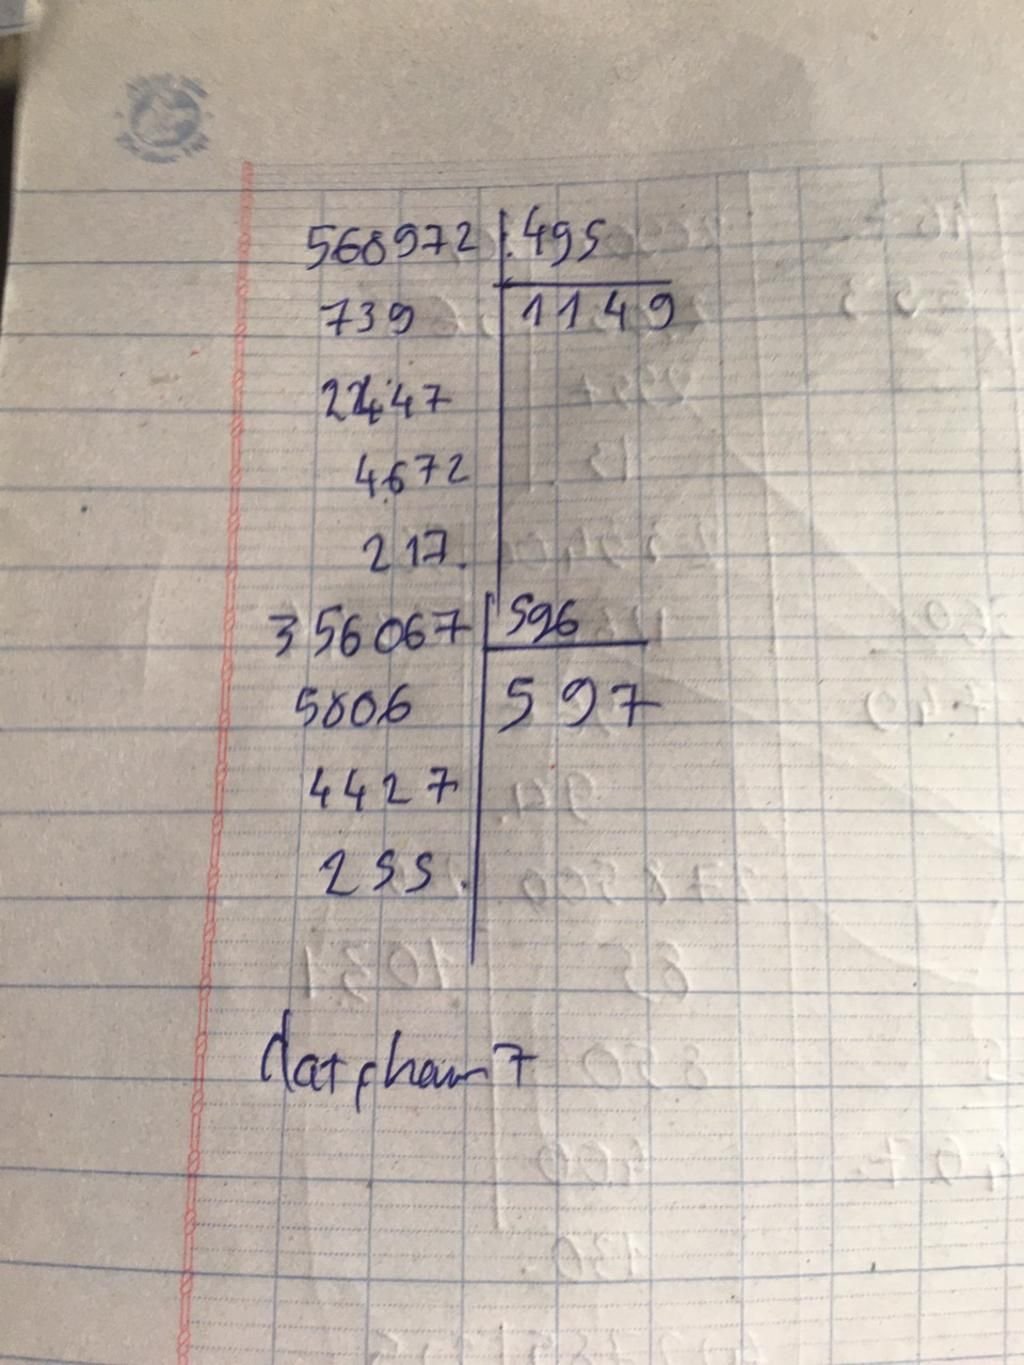 568972 495
739 1149
2447
4672
217.
356067 596
5806 597
4427
255.
datpham7